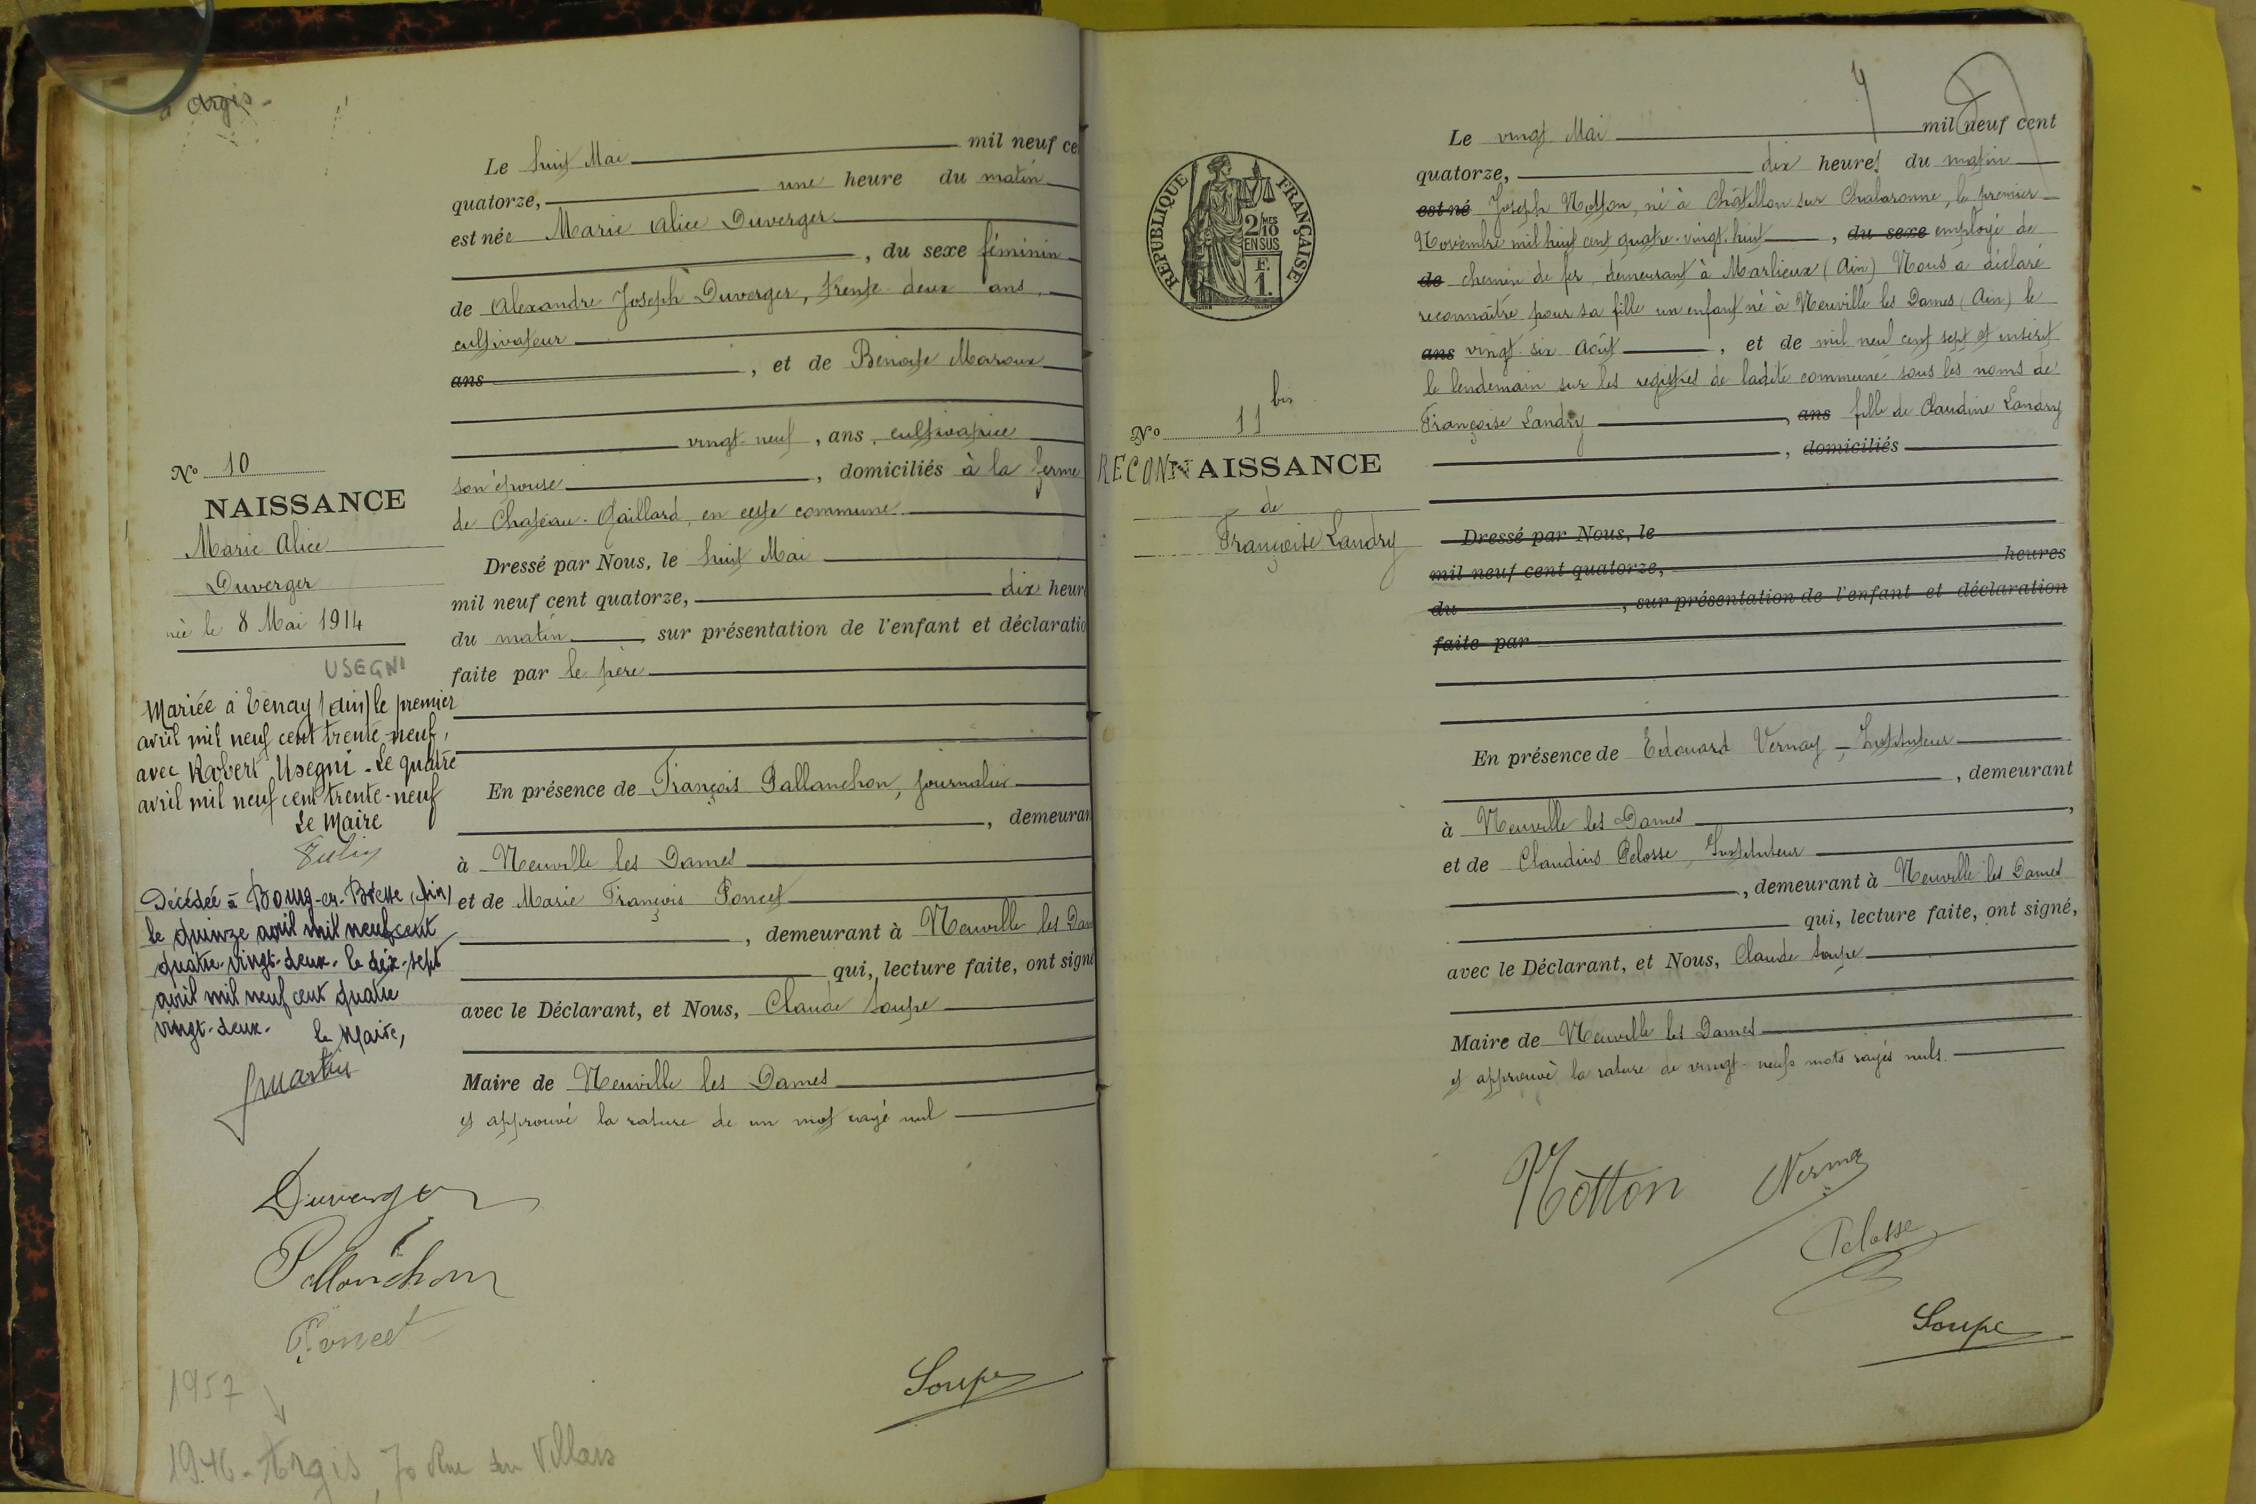 à Argis -
Le huit Mai mil neuf ce
quatorze, une heure du matin
est née Marie Alice Duverger
, du sexe féminin
de Alexandre Joseph Duverger, trente-deux ans,
cultivateur
ans , et de Benoite Maroux
vingt-neuf , ans, cultivatrice
son épouse , domiciliés à la ferme
de Chateau-Gaillard, en cette commune
Dressé par Nous, le huit Mai
mil neuf cent quatorze, dix heure
du matin , sur présentation de l'enfant et déclaratio
faite par le père
En présence de François Pallanchon, journalier
, demeuran
à Neuville les Dames
et de Marie François Poncet
, demeurant à Neuville les Dam
qui, lecture faite, ont signé
avec le Déclarant, et Nous, Claude Soupe
Maire de Neuville les Dames
et approuvé la rature de un mot rayé nul
No 10
NAISSANCE
Marie Alice
Duverger
née le 8 Mai 1914
USEGNI
Mariée à Tenay (Ain) le premier
avril mil neuf cent trente-neuf,
avec Robert Usegni - Le quatre
avril mil neuf cent trente-neuf
Le Maire
Décédée à Bourg-en-Bresse (Ain)
le quinze avril mil neuf cent
quatre-vingt-deux. le dix-sept
avril mil neuf cent quatre
vingt-deux. le Maire,
JMartin
Duverger
Pallanchon
Poncet
Soupe
1957
1946 - Argis, 70 Rue du Villars
Le vingt Mai mil neuf cent
quatorze, dix heures du matin
est né Joseph Notton, né à Châtillon sur Chalaronne, le premier
Novembre mil huit cent quatre-vingt-huit , du sexe employé de
de chemin de fer, demeurant à Marlieux (Ain) Nous a déclaré
reconnaître pour sa fille un enfant né à Neuville les Dames (Ain) le
ans vingt-six Août , et de mil neuf cent sept et inscrit
le lendemain sur les registres de ladite commune sous les noms de
Françoise Landry , ans fille de Claudine Landry
, domiciliés
Dressé par Nous, le
mil neuf cent quatorze, heures
du , sur présentation de l'enfant et déclaration
faite par
En présence de Edouard Vernay - Instituteur
, demeurant
à Neuville les Dames ,
et de Claudius Pelosse, Instituteur
, demeurant à Neuville les Dames
qui, lecture faite, ont signé,
avec le Déclarant, et Nous, Claude Soupe
Maire de Neuville les Dames
et approuvé la rature de vingt-neufs mots rayés nuls.
RÉPUBLIQUE FRANÇAISE
2/10 MES
EN SUS
F.
1.
No 11 bis
RECONNAISSANCE
de
Françoise Landry
Notton
Vernay
Pelosse
Soupe